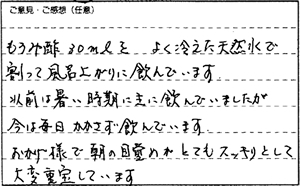 ご意見・ご感想(任意)
もろみ酢30mlを よく冷えた天然水で
割って風呂上がりに飲んでいます
以前は暑い時期に主に飲んでいましたが
今は毎日かかさず飲んでいます
おかげ様で朝の目覚めが とてもスッキリとして
大変重宝しています